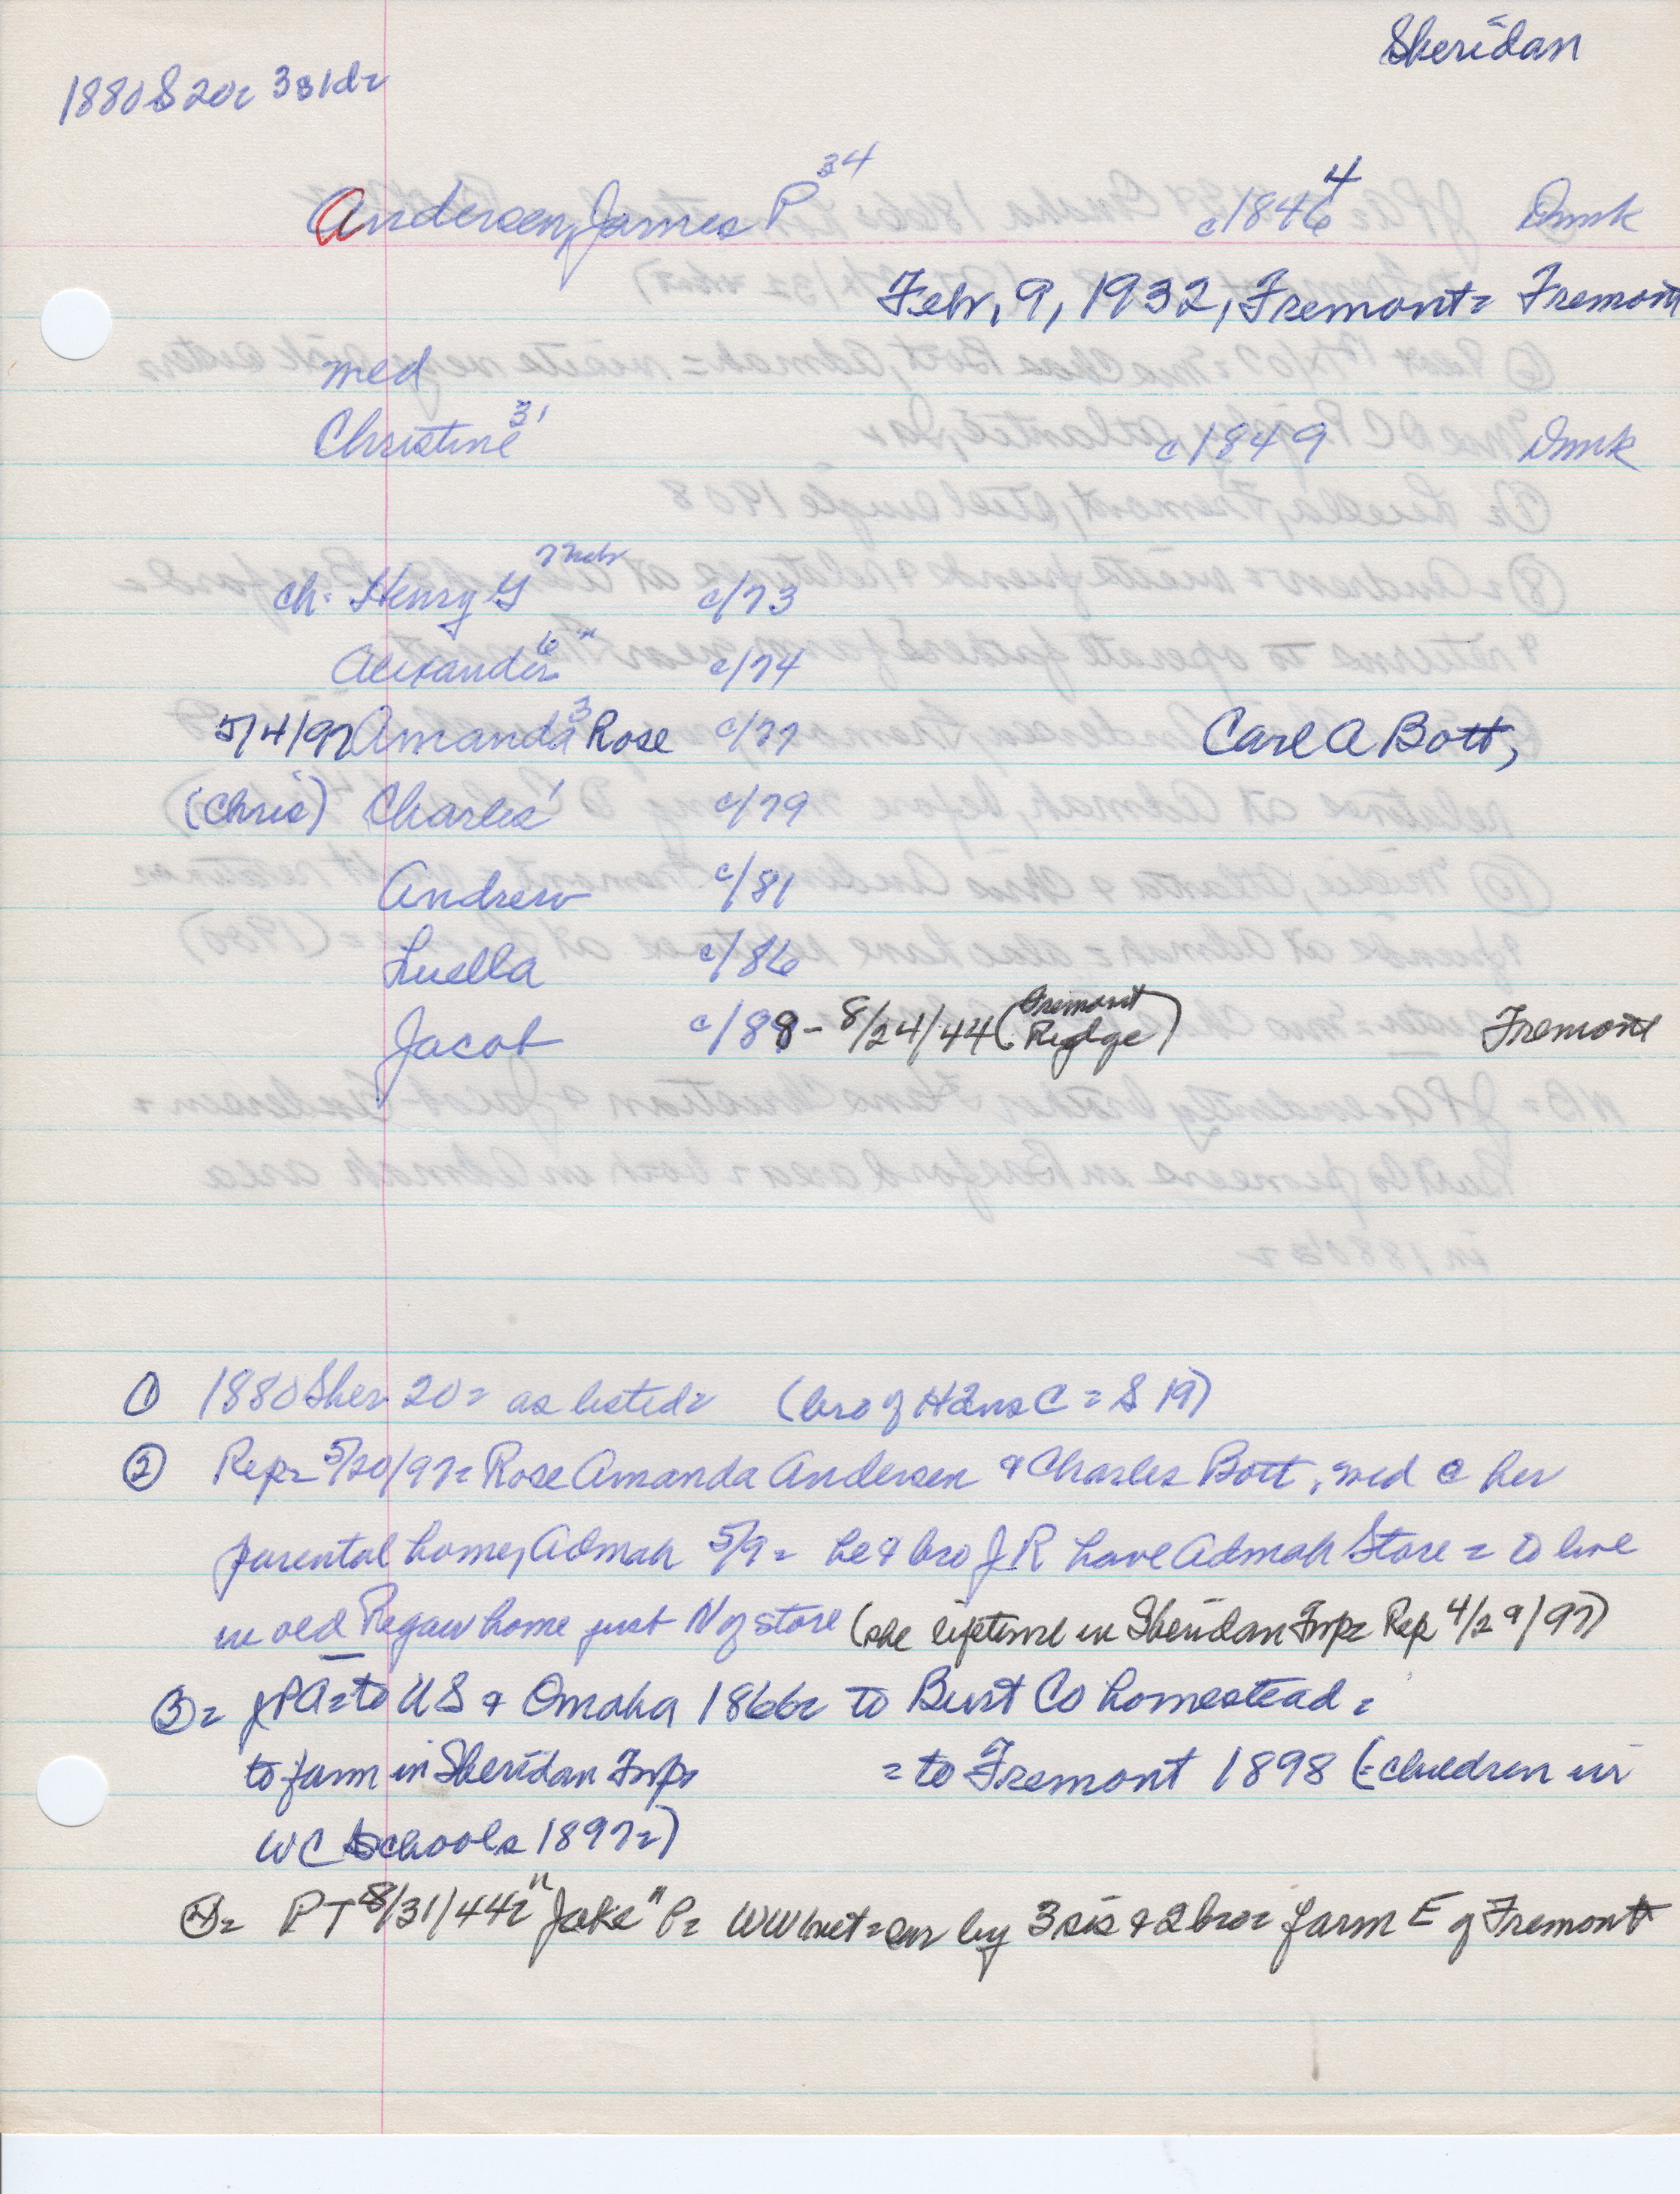 Sheridan
1880 S 20= 3s1d=
Andersen, James P 34 c/1846 4 Dmk
Feb, 9, 1932, Fremont= Fremont
med
Christine 31 c/1849 Dmk
ch. Henry G 7 Neb c/73
Alexander 6 " c/74
5/4/97 Amanda 3 Rose c/77 Carl A Bott,
(Chris) Charles 1 c/79
Andrew c/81
Luella c/86
Jacob c/88 - 8/24/44 (Fremont Ridge) Fremont
① 1880 Sher 20= as listed= (bro of Hans C = S 19)
② Rep= 5/20/97= Rose Amanda Andersen & Charles Bott, med @ her
parental home, Admah 5/9= he & bro J R have Admah Store = to live
in old Regaw home just N of store (she lifetime in Sheridan Twp= Rep 4/29/97)
③= JPA= to US & Omaha 1866= to Burt Co homestead=
to farm in Sheridan Twp= = to Fremont 1898 (=children in
WC schools 1897=)
④= PT 8/31/44= "Jake" P= WW vet= sur by 3 sis & 2 bro= farm E of Fremont